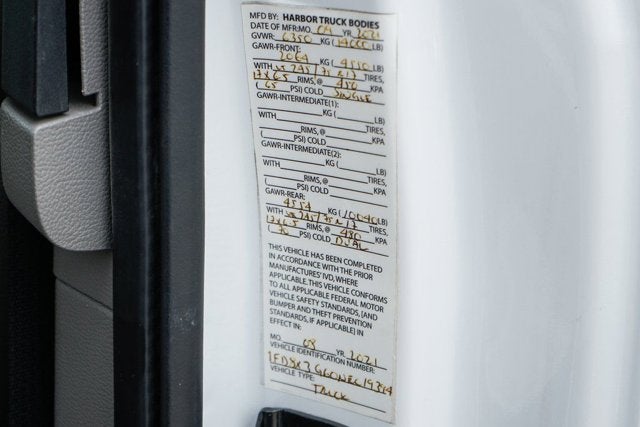 MFD BY: HARBOR TRUCK BODIES
DATE OF MFR: MO. 09 YR. 2021
GVWR: 6350 KG (14000 LB)
GAWR-FRONT:
2064 KG (4550 LB)
WITH 245/75R17 TIRES,
17x6.5 RIMS, @ 450 KPA
(65 PSI) COLD SINGLE
GAWR-INTERMEDIATE(1):
KG ( LB)
WITH TIRES,
RIMS, @ KPA
( PSI) COLD
GAWR-INTERMEDIATE(2):
KG ( LB)
WITH TIRES,
RIMS, @ KPA
( PSI) COLD
GAWR-REAR:
4554 KG (10040 LB)
WITH 245/75R17 TIRES,
17x6.5 RIMS, @ KPA
( PSI) COLD DUAL
THIS VEHICLE HAS BEEN COMPLETED
IN ACCORDANCE WITH THE PRIOR
MANUFACTURES' IVD, WHERE
APPLICABLE. THIS VEHICLE CONFORMS
TO ALL APPLICABLE FEDERAL MOTOR
VEHICLE SAFETY STANDARDS, (AND
BUMPER AND THEFT PREVENTION
STANDARDS, IF APPLICABLE) IN
EFFECT IN:
MO. 08 YR. 2021
VEHICLE IDENTIFICATION NUMBER:
VEHICLE TYPE:
TRUCK